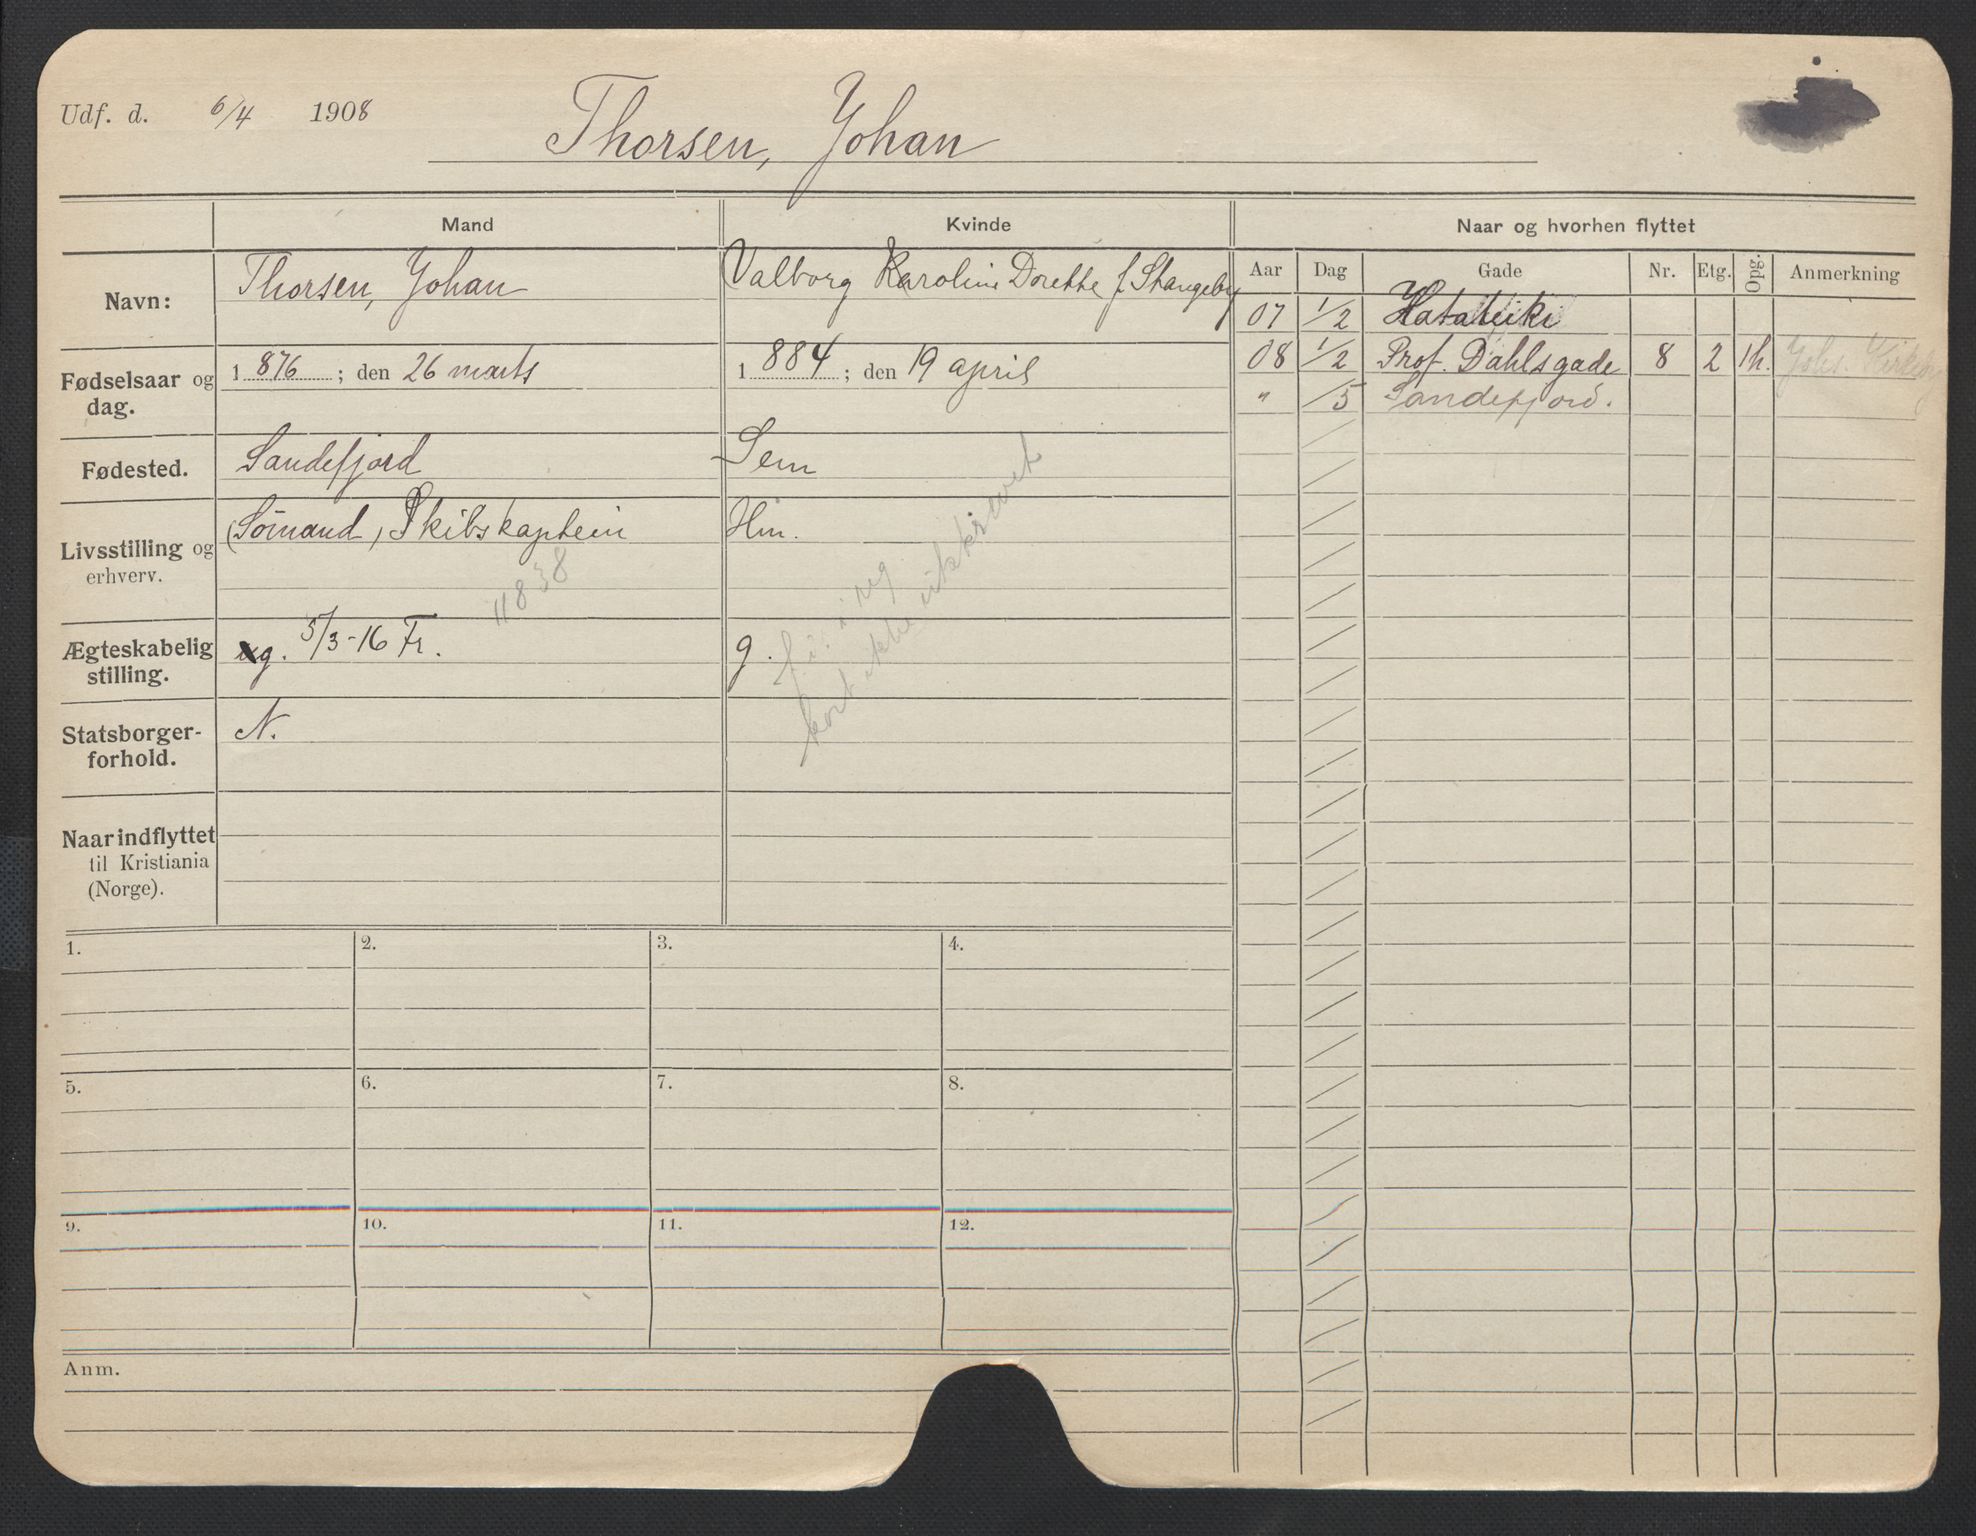 Udf. d. 6/4 1908
Thorsen, Johan
Mand
Kvinde
Naar og hvorhen flyttet
Navn:
Thorsen, Johan
Valborg Karoline Dorethe f. Stangeby
Fødselsaar og dag.
1876; den 26 marts
1884; den 19 april
Fødested.
Sandefjord
Sem
Livsstilling og erhverv.
(Sömand, Skibskaptein
Hm.
11838
Ægteskabelig stilling.
g. 5/3-16 Fr.
g.
kort ikke
Statsborger-forhold.
N.
Naar indflyttet til Kristiania (Norge).
Aar Dag Gade Nr. Etg. Opg. Anmerkning
07 1/2
08 1/2 Prof. Dahlsgade 8 2 1h. Johs. Kirkeby
" /5 Sandefjord.
1. 2. 3. 4.
5. 6. 7. 8.
9. 10. 11. 12.
Anm.